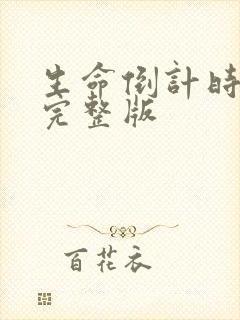 生命倒計時
完整版
百花衣